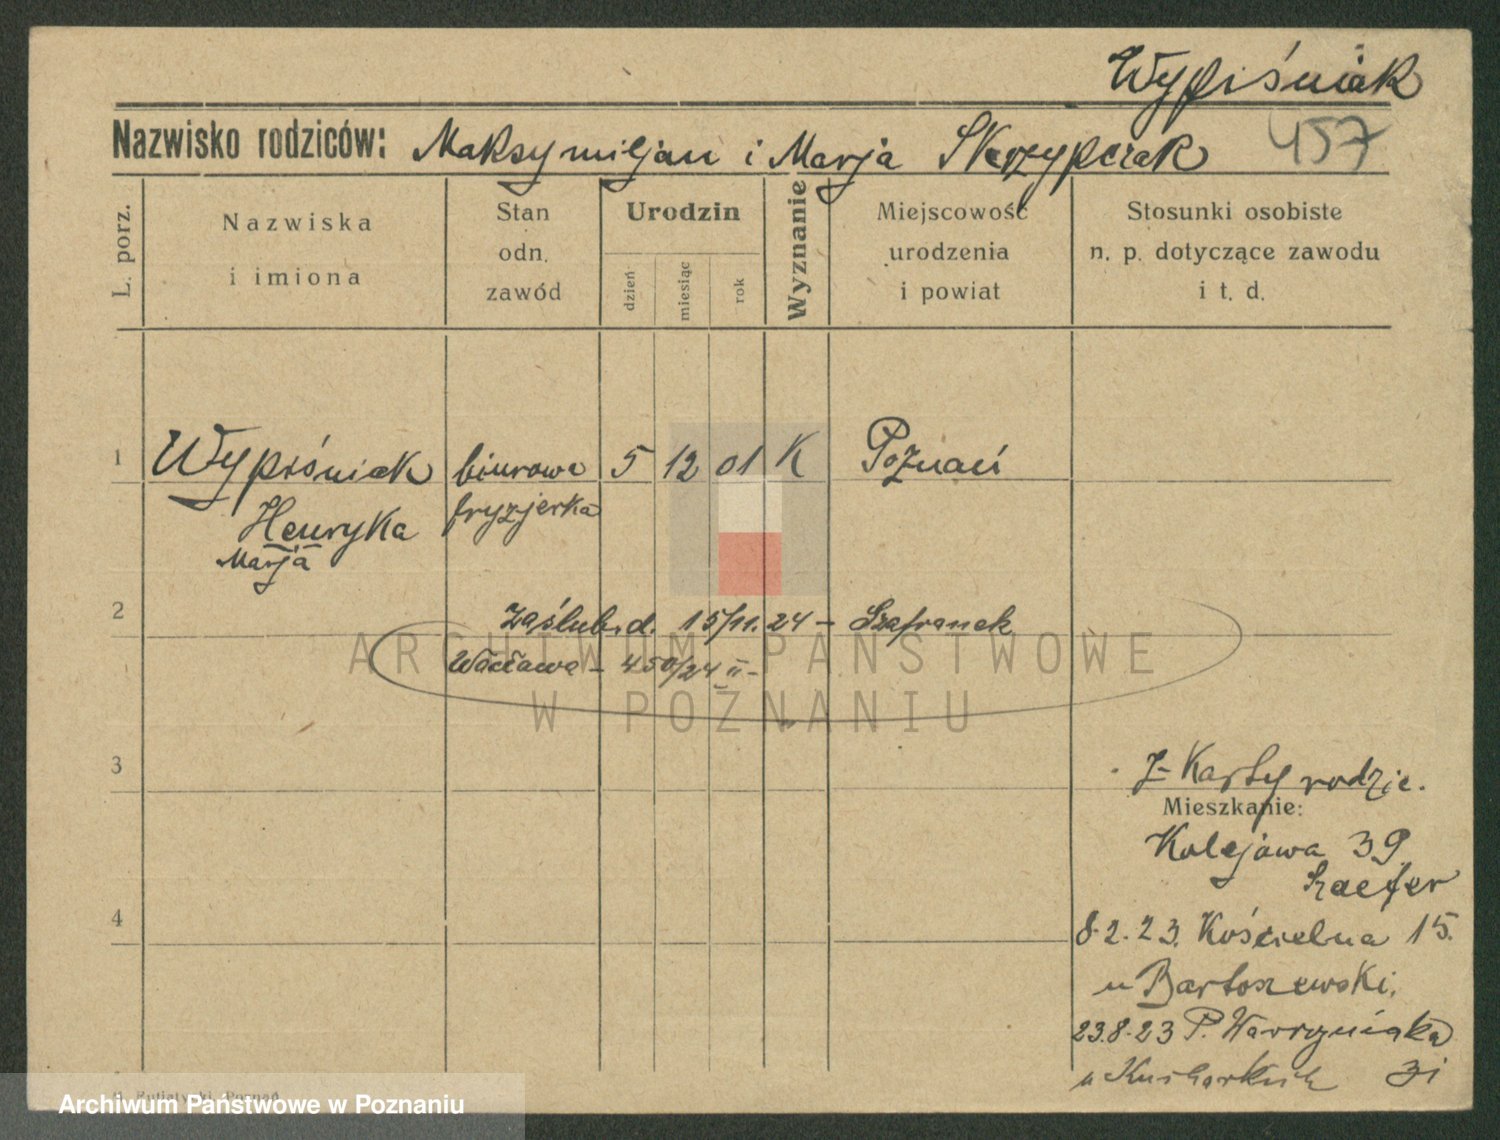 Wypiśniak
Nazwisko rodziców: Maksymiljan i Marja Skrzypczak 457
L. porz.
Nazwiska
i imiona
Stan
odn.
zawód
Urodzin
dzień
miesiąc
rok
Wyznanie
Miejscowość
urodzenia
i powiat
Stosunki osobiste
n. p. dotyczące zawodu
i t. d.
1 Wypiśniak biurowa 5 12 01 K Poznań
Henryka fryzjerka
Marja
2 Zaślub. d. 15/11. 24 – Szafranek
Wacława – 450/24 II –
ARCHIWUM PAŃSTWOWE
W POZNANIU
3
Z Karty rodzic.
Mieszkanie:
Kolejowa 39
Szaefer
4
8.2.23. Kościelna 15.
u Bartoszewski.
23.8.23 P. Wawrzyniaka
u 31
Poznań
Archiwum Państwowe w Poznaniu